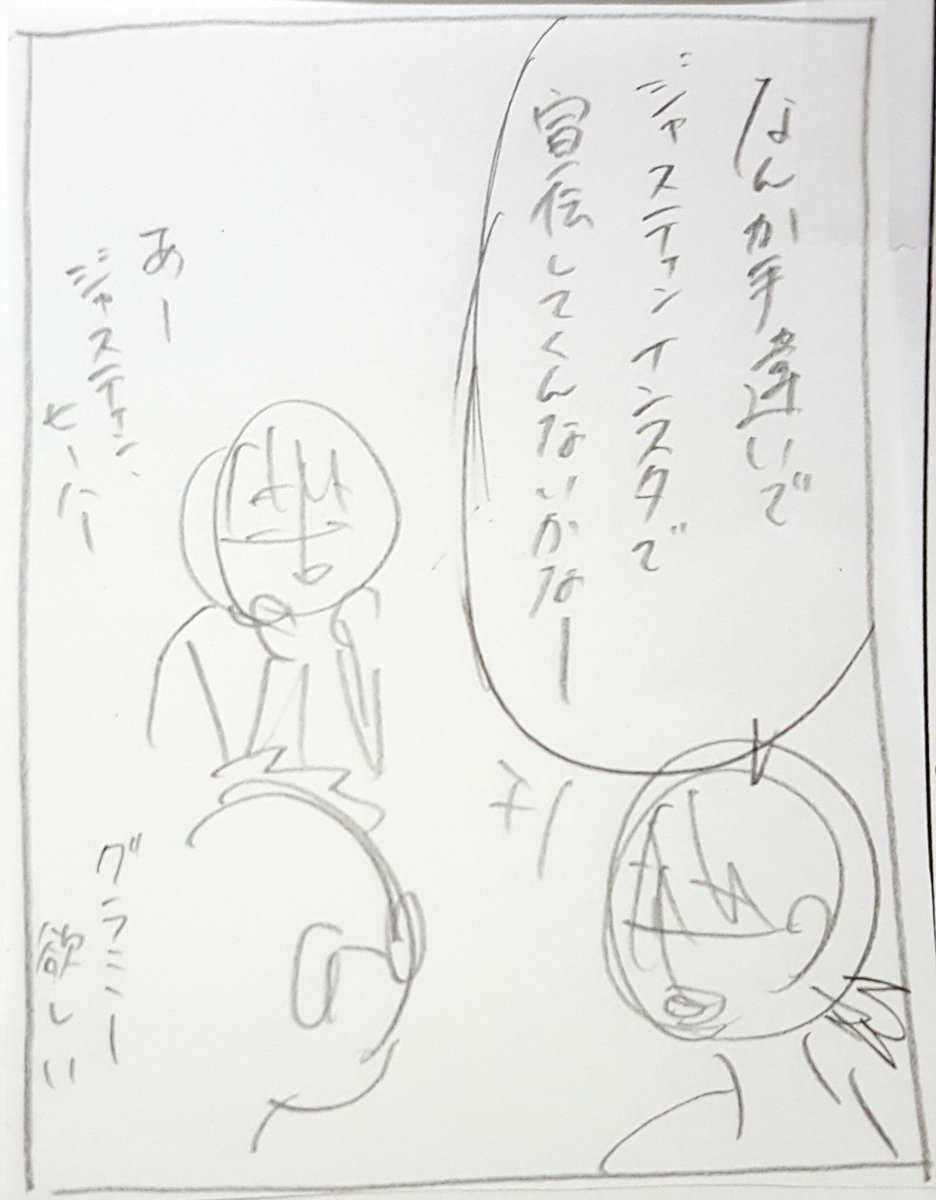 なんか手違いで
ジャスティンインスタで
宣伝してくんないかなー
あー
ジャスティン、
ビーバー
グラミー
欲しい